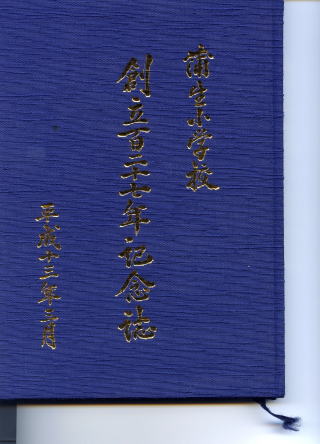 蒲生小学校
創立百二十七年記念誌
平成十三年三月